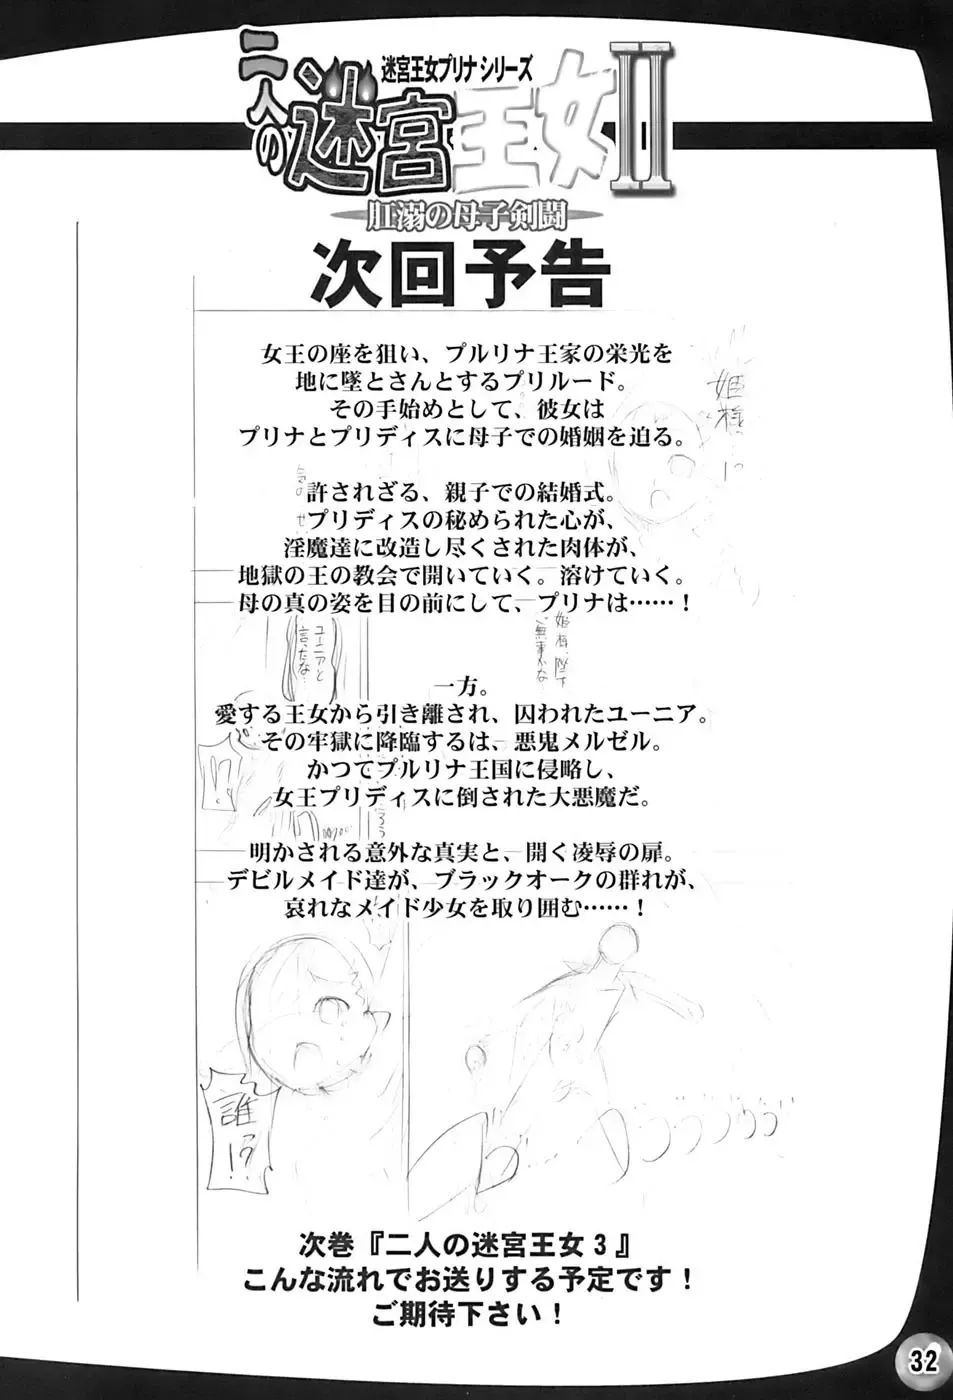 迷宮王女プリナシリーズ
二人の迷宮王女II
肛溺の母子剣闘
次回予告
女王の座を狙い、プルリナ王家の栄光を
地に墜とさんとするプリルード。
その手始めとして、彼女は
プリナとプリディスに母子での婚姻を迫る。
許されざる、親子での結婚式。
プリディスの秘められた心が、
淫魔達に改造し尽くされた肉体が、
地獄の王の教会で開いていく。溶けていく。
母の真の姿を目の前にして、プリナは……！
一方。
愛する王女から引き離され、囚われたユーニア。
その牢獄に降臨するは、悪鬼メルゼル。
かつてプルリナ王国に侵略し、
女王プリディスに倒された大悪魔だ。
明かされる意外な真実と、開く凌辱の扉。
デビルメイド達が、ブラックオークの群れが、
哀れなメイド少女を取り囲む……！
姫様…!?
ユーニアと
言ったな…
姫様、陛下
ご無事かな…
!?
誰!?
次巻『二人の迷宮王女3』
こんな流れでお送りする予定です！
ご期待下さい！
32